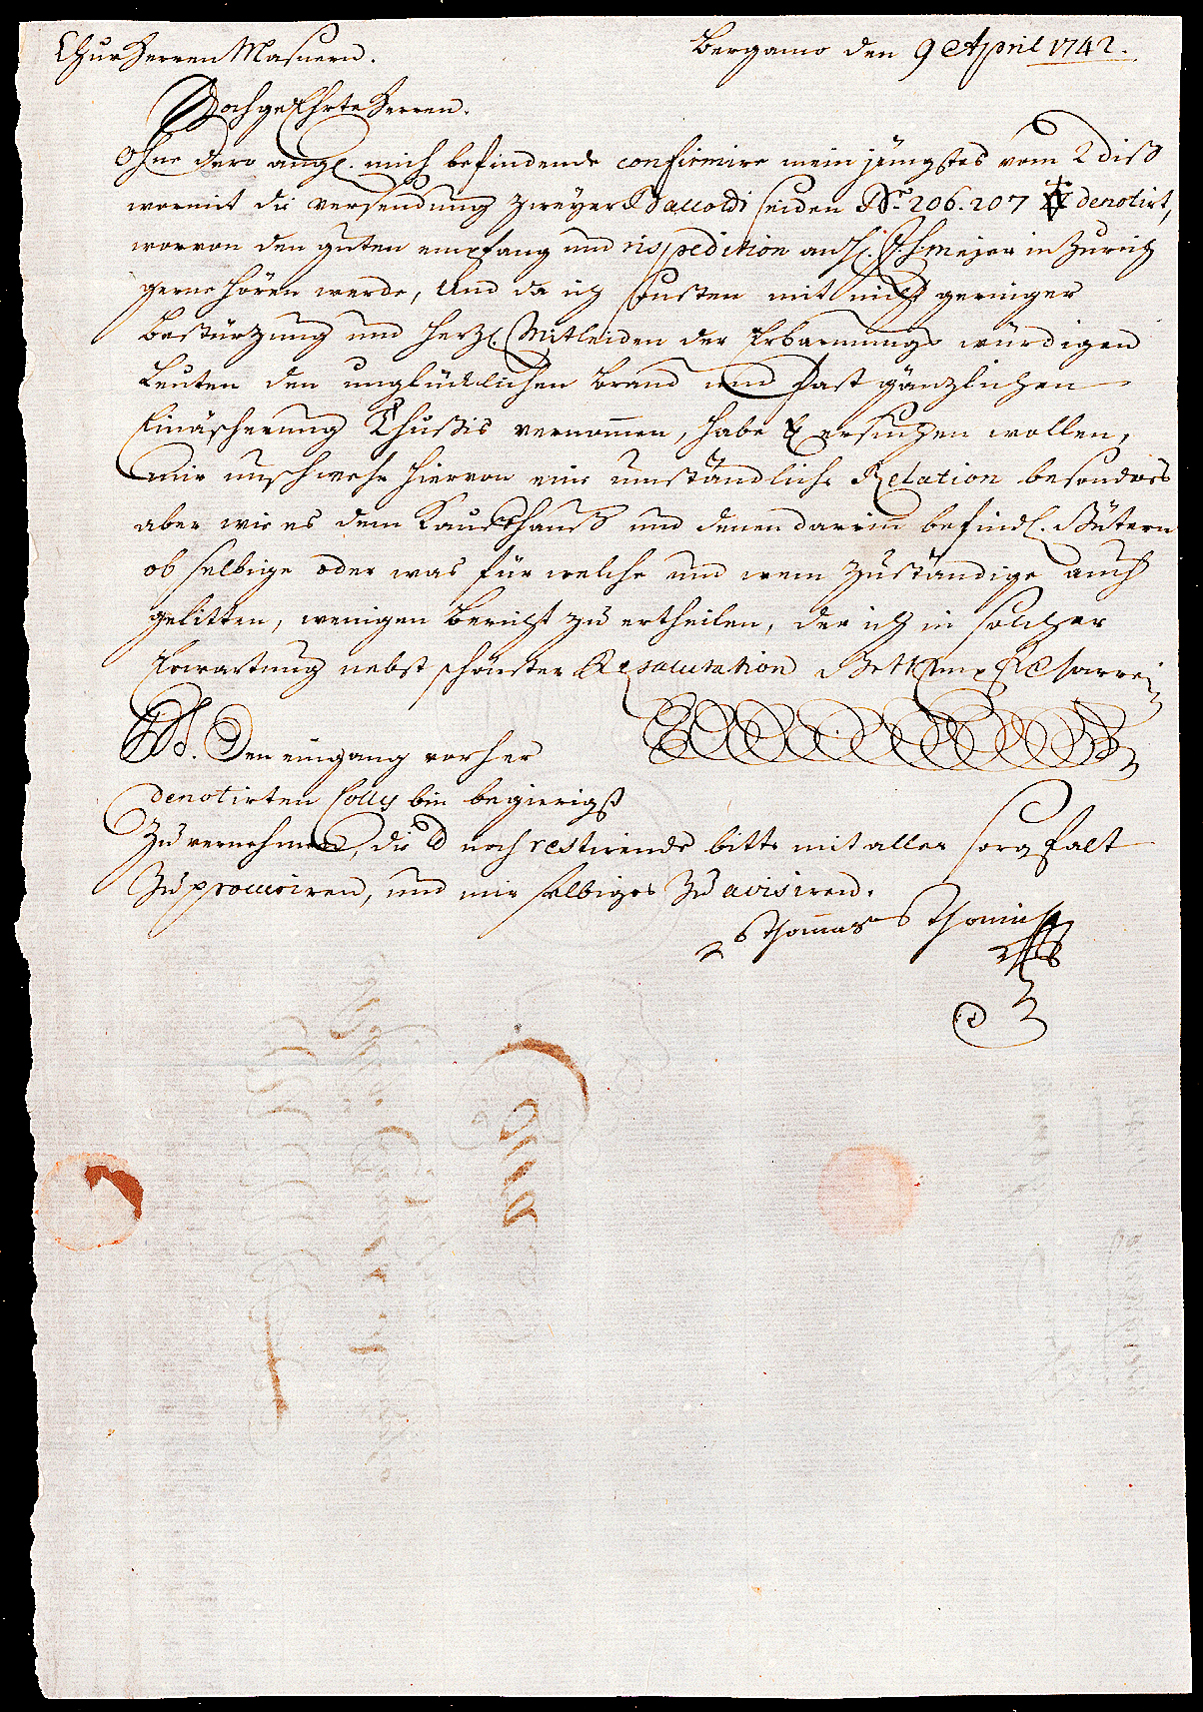 Chur Herren Masnern.
Bergamo den 9 April 1742.
HochgeEhrte Herren.
Ohne dero angl. mich befindende confirmire mein jüngstes vom 2 diß
wormit die versendung zweyer Baccordi seiden N.º 206. 207 denotirt,
worvon den guten empfang und rispedition an H. meyer in Zürich
gerne hören werde, Und da ich sonsten mit nicht geringer
Bestürzung und herzl. Mitleiden der Erbarmungs würdigen
Leuten den unglücklichen brand und fast gänzlichen
Einäscherung Thusis vernommen, habe ersuchen wollen,
mir unschwehr hiervon eine umständliche Relation besonders
aber wie es dem Kauffhauß und denen darinn befindl. Gütern
ob selbige oder was für welche und wem zuständige auch
gelitten, wenigen bericht zu ertheilen, der ich in solcher
Erwartung nebst schönster Resalutation
PS. Den eingang vorher
denotirten Colly bin begierigst
Zu vernehmen, die noch restirende bitte mit aller sorgfalt
Zu procuriren, und mir selbiges Zu avisiren.
Thomas